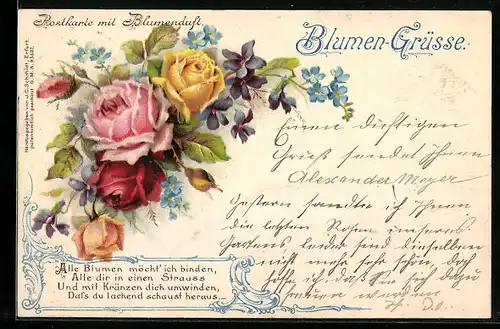 Postkarte mit Blumenduft.
Blumen-Grüsse.
Herausgegeben von J.C. Schmidt, Erfurt.
patentamtlich geschützt G.M.
Einen duftigen
Gruß sendet Ihnen
Alexander Meyer
Gestern sandte ich Ihnen
die letzten Rosen unseres
Gartens, leider sind dieselben
nicht mehr sehr schön, doch
hoffe ich, daß Sie sich dazu
werden
D.O.
Alle Blumen möcht' ich binden,
Alle dir in einen Strauss
Und mit Kränzen dich umwinden,
Dass du lachend schaust heraus...